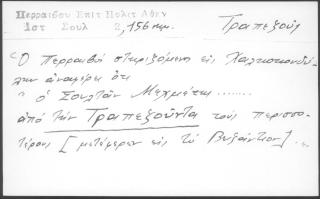 Περραιβου Επιτ Πολιτ Αθην
Ιστ Σουλ 2,156 Τραπεζούς
Ὁ Περραιβὸς στηριζόμενος εἰς Χαλκοκονδύ-
λην ἀναφέρει ὅτι
" ὁ Σουλτὰν Μεχμέτης ........
ἀπὸ τὴν Τραπεζοῦντα τοὺς περισσο-
τέρους [μετέφερεν εἰς τὸ Βυζάντιον] ..